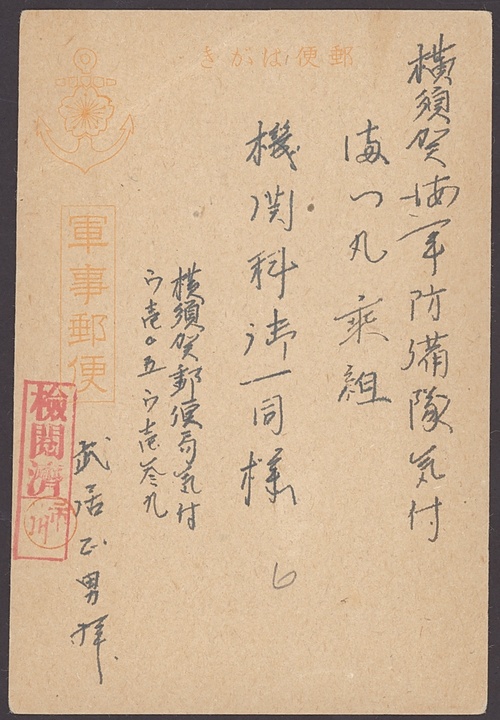 郵便はがき
横須賀海軍防備隊気付
丸乗組
機関科御一同様
横須賀郵便局気付
ウ壱〇五ウ壱参九
武居正男拝
軍事郵便
檢閲濟
市川